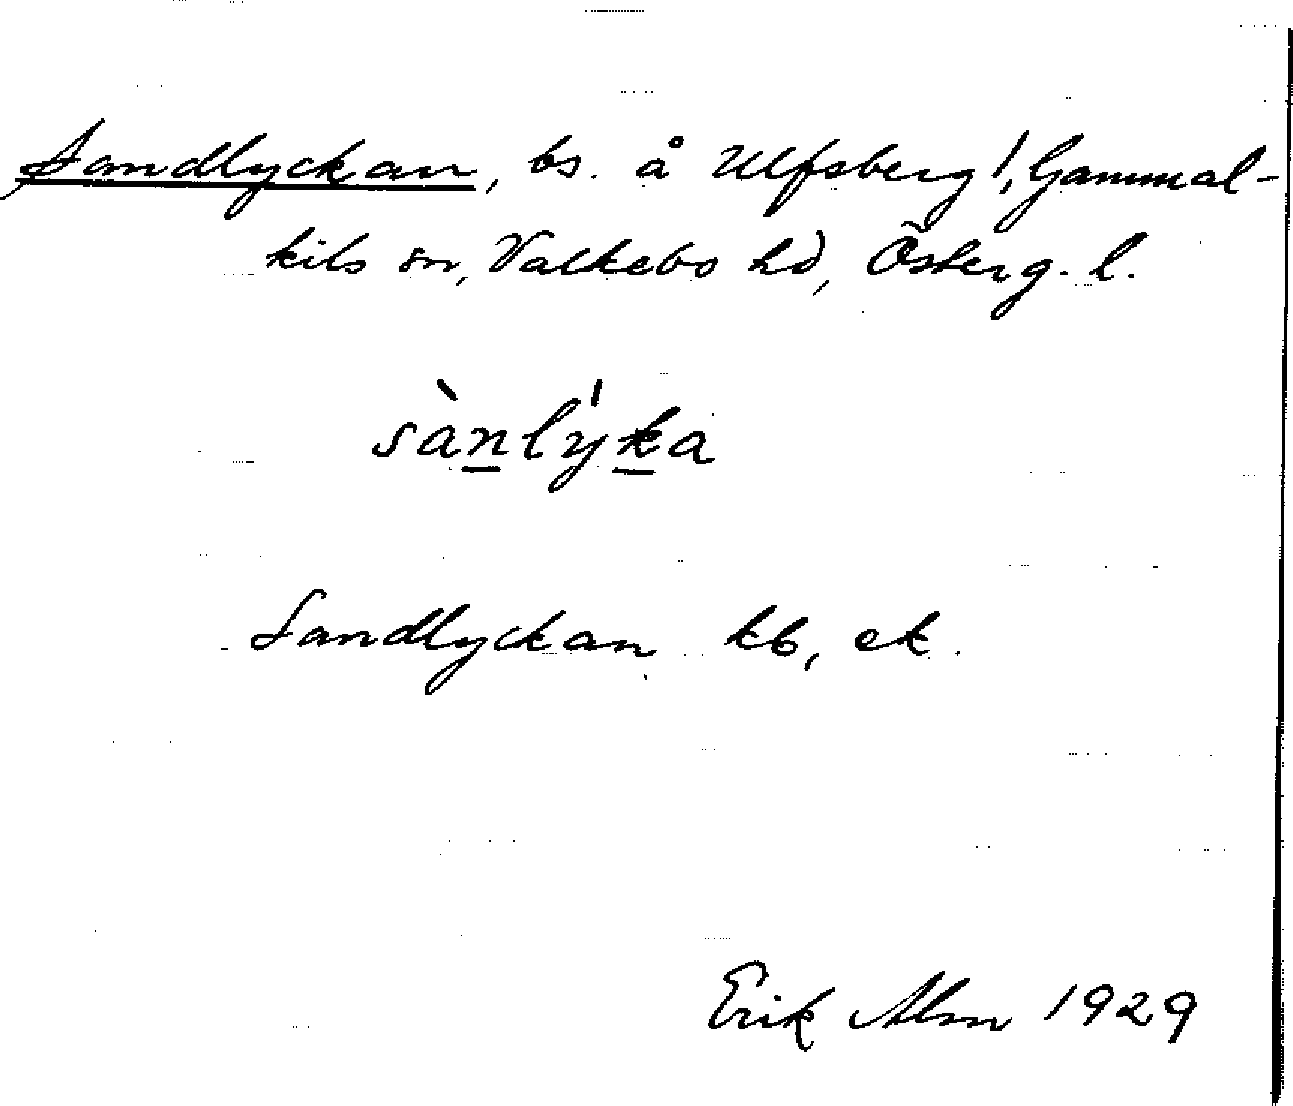 Sandlyckan, bs. å Ulfsberg!, Gammal-
kils sn, Valkebo hd, Österg. l.
sànlýka
Sandlyckan kb, ek.
Erik Alm 1929